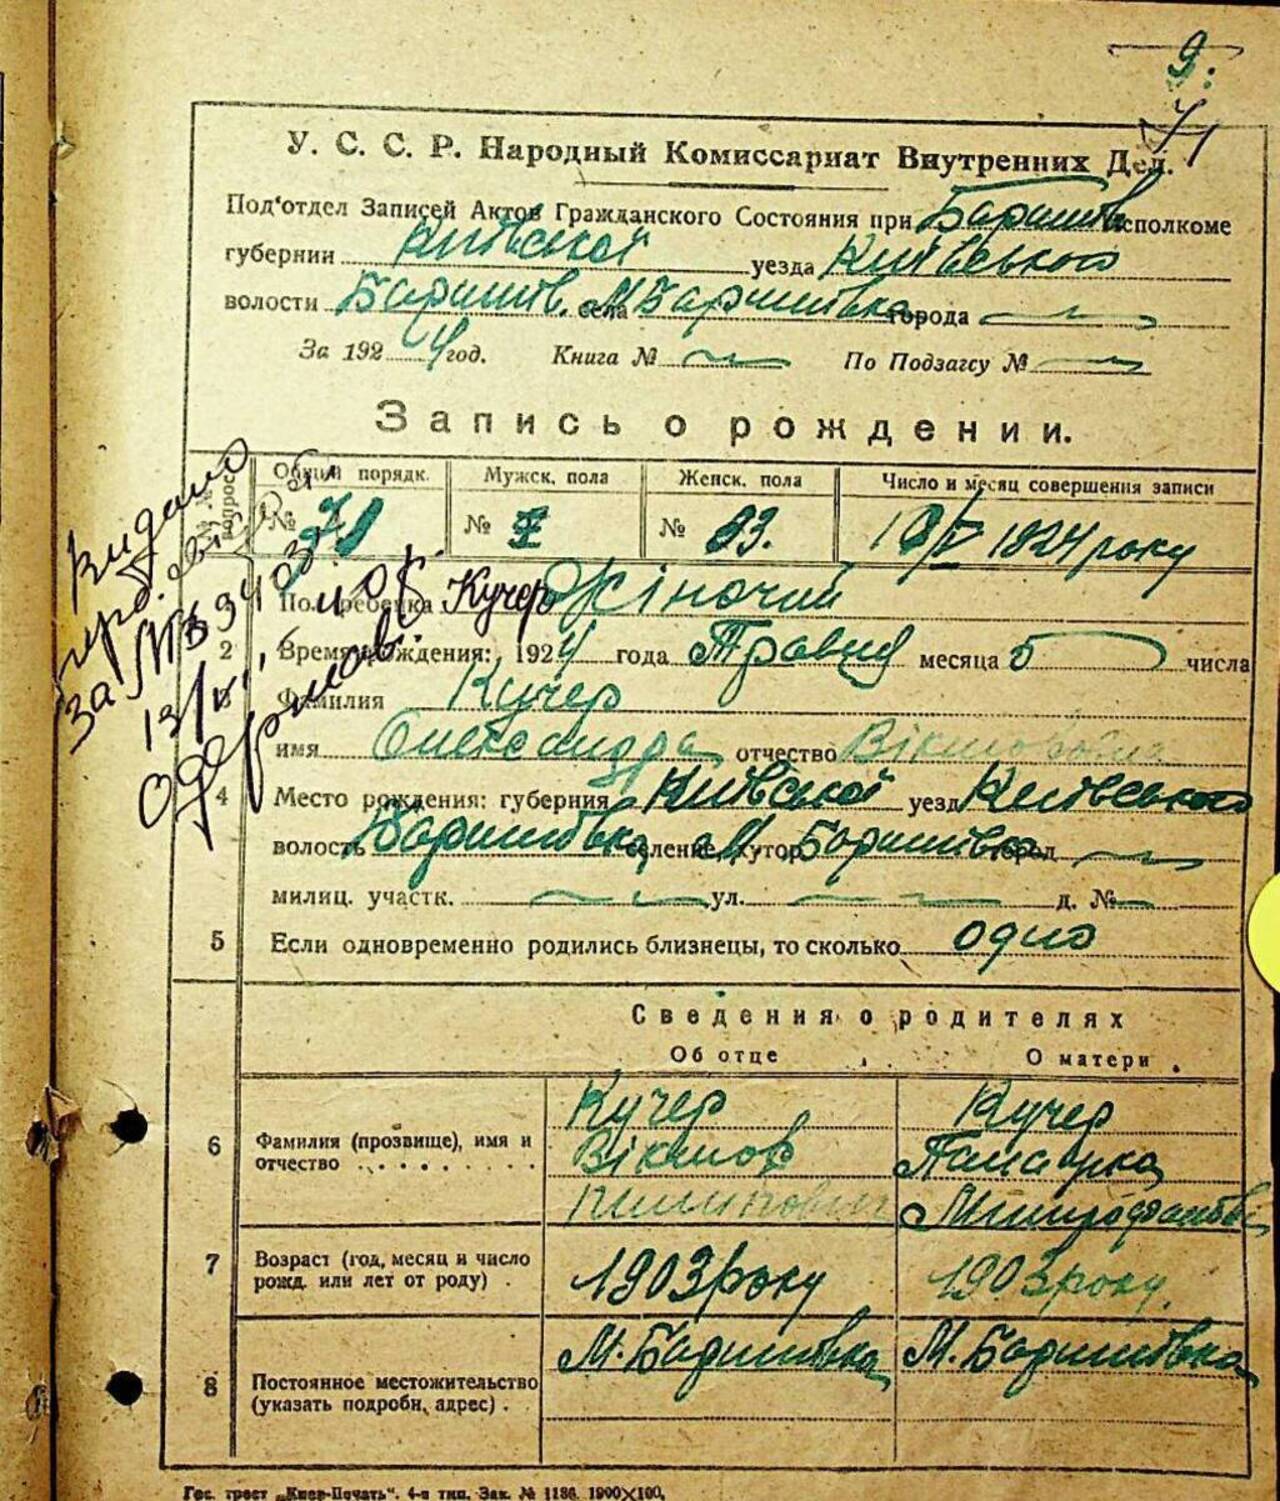 9.
У. С. С. Р. Народный Комиссариат Внутренних Дел.
Под'отдел Записей Актов Гражданского Состояния при Баришів. исполкоме
губернии Київської уезда Київського
волости Баришів. села М. Баришівка города —
За 1924 год. Книга № — По Подзагсу № —
Запись о рождении.
№№ вопрос. Общий порядк. Мужск. пола Женск. пола Число и месяц совершения записи
№ № № 33. 1824 року
Пол ребенка Жіночий
2 Время рождения: 1924 года Травня месяца 5 числа
3 Фамилия Кучер
имя Олександра отчество Вікторовна
4 Место рождения: губерния Київської уезд Київського
волость Баришівка селение, хутор М. Баришівка город —
милиц. участк. — — ул. — — д. № —
5 Если одновременно родились близнецы, то сколько одно
Видано
за №
13/VI
одержав
Кучер
Сведения о родителях
Об отце О матери
6 Фамилия (прозвище), имя и отчество Кучер Кучер
Віктор
Митрофанівна
7 Возраст (год, месяц и число рожд. или лет от роду) 1903 року 1903 року.
8 Постоянное местожительство (указать подробн. адрес) М. Баришівка М. Баришівка
Гос. трест „Киев-Печать". 4-я тип. Зак. № 1186. 1900×100,